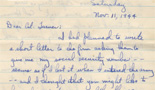 Saturday
Nov. 11, 1944
Dear Col.
I had planned to write
a short letter to you from asking them to
give me my social security number -
as I lost it when I entered the navy
and I thought that you might like to